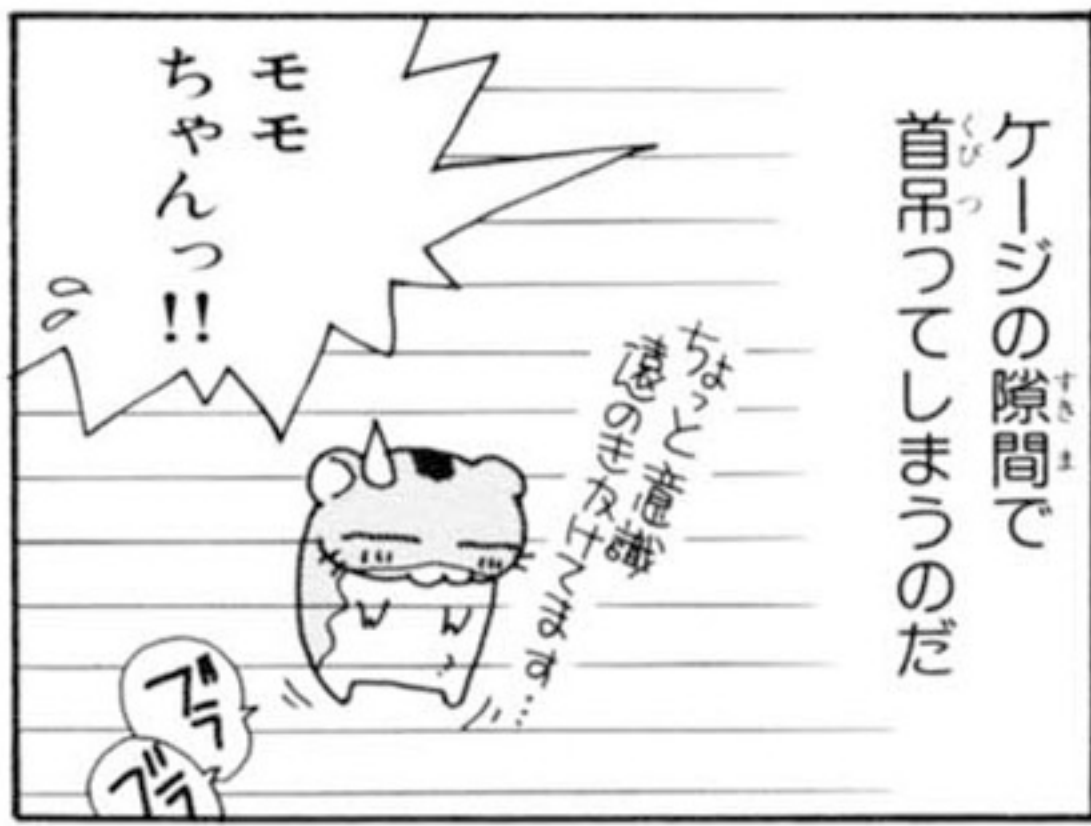 ケージの隙間で
首吊ってしまうのだ
ちょっと意識
遠のきかけてます…
モモ
ちゃんっ!!
ブラ
ブラ